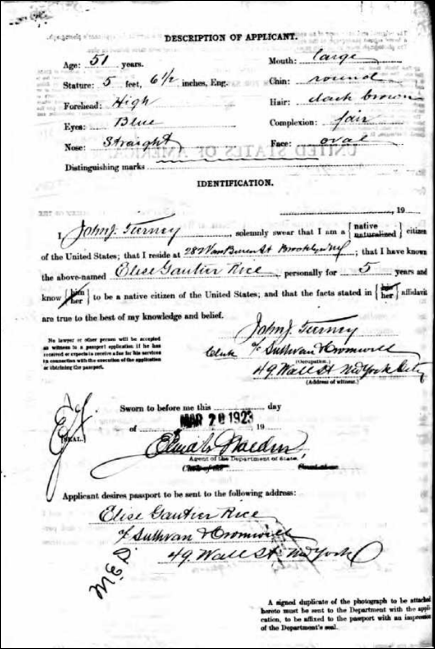 DESCRIPTION OF APPLICANT.
Age: 51 years.
Mouth: large
Stature: 5 feet, 6 1/2 inches, Eng.
Chin: round
Forehead: High
Hair: dark brown
Eyes: Blue
Complexion: fair
Nose: Straight
Face: oval
UNITED STATES OF AMERICA
Distinguishing marks
IDENTIFICATION.
, 19
I, John J. Turney, solemnly swear that I am a {native naturalized} citizen
of the United States; that I reside at 287 Van Buren St Brooklyn NY; that I have known
the above-named Elise Gautier Rice personally for 5 years and
know {him her} to be a native citizen of the United States; and that the facts stated in {his her} affidavit
are true to the best of my knowledge and belief.
No lawyer or other person will be accepted
as witness to a passport application if he has
received or expects to receive a fee for his services
in connection with the execution of the application
or obtaining the passport.
John J. Turney
Clerk c/o Sullivan & Cromwell
(Occupation.)
49 Wall St New York City
(Address of witness.)
Sworn to before me this day
of MAR 20 1923, 19
[SEAL.]
Agent of the Department of State.
Applicant desires passport to be sent to the following address:
Elise Gautier Rice
c/o Sullivan & Cromwell
49 Wall St New York
A signed duplicate of the photograph to be attached
hereto must be sent to the Department with the appli-
cation, to be affixed to the passport with an impression
of the Department's seal.